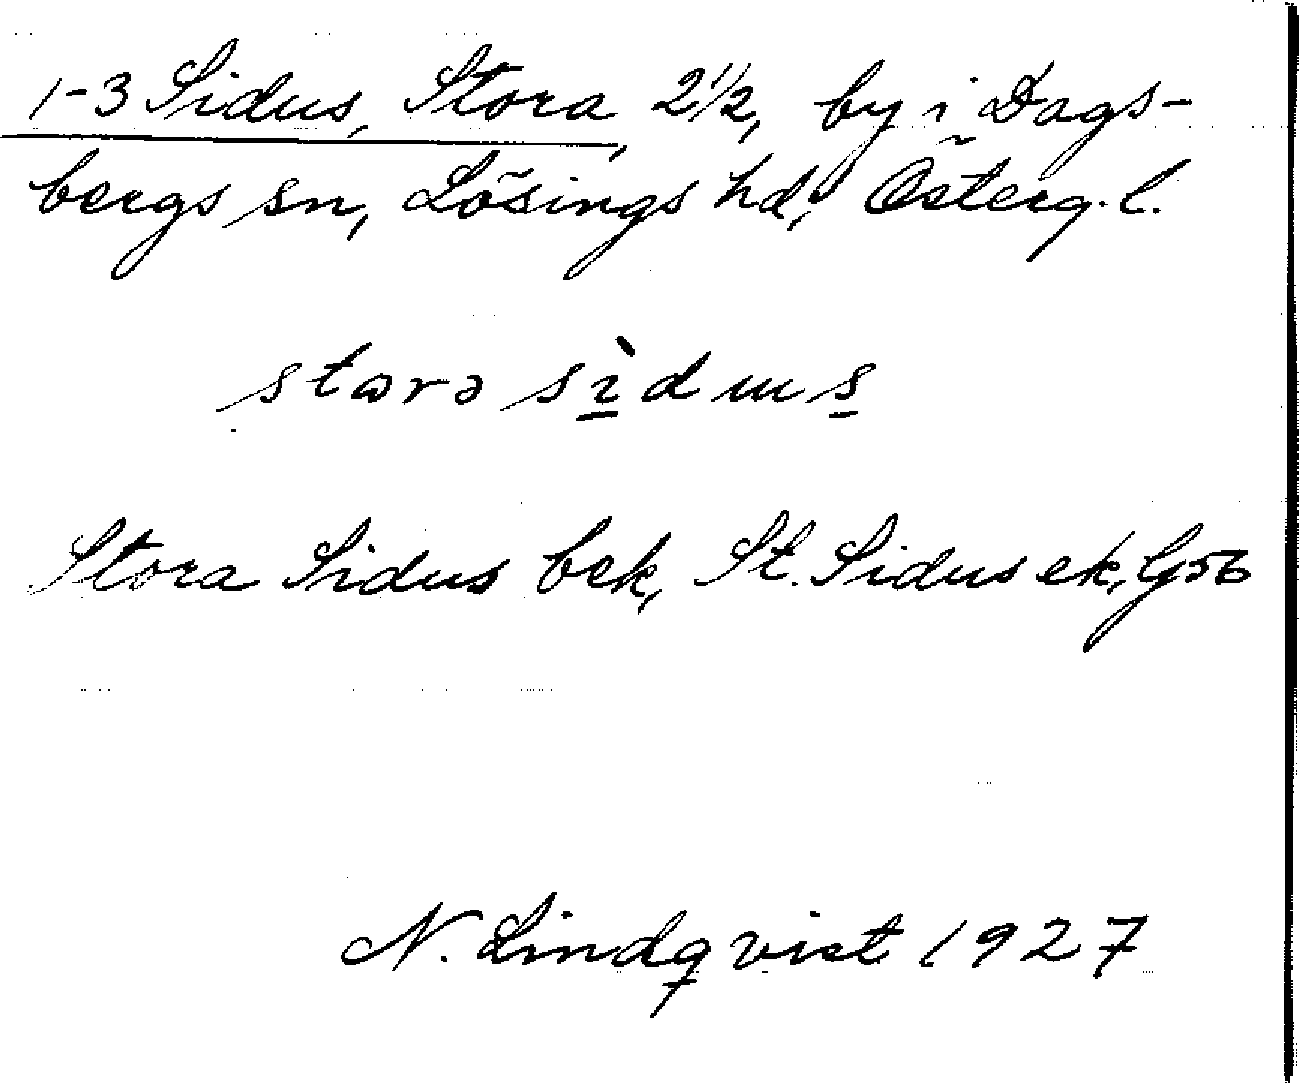 1-3 Sidus, Stora, 2 1/2, by i Dags-
bergs sn, Lösings hd, Österg. l.
Stora Sidus bek, St. Sidus ek, G56
N. Lindqvist 1927